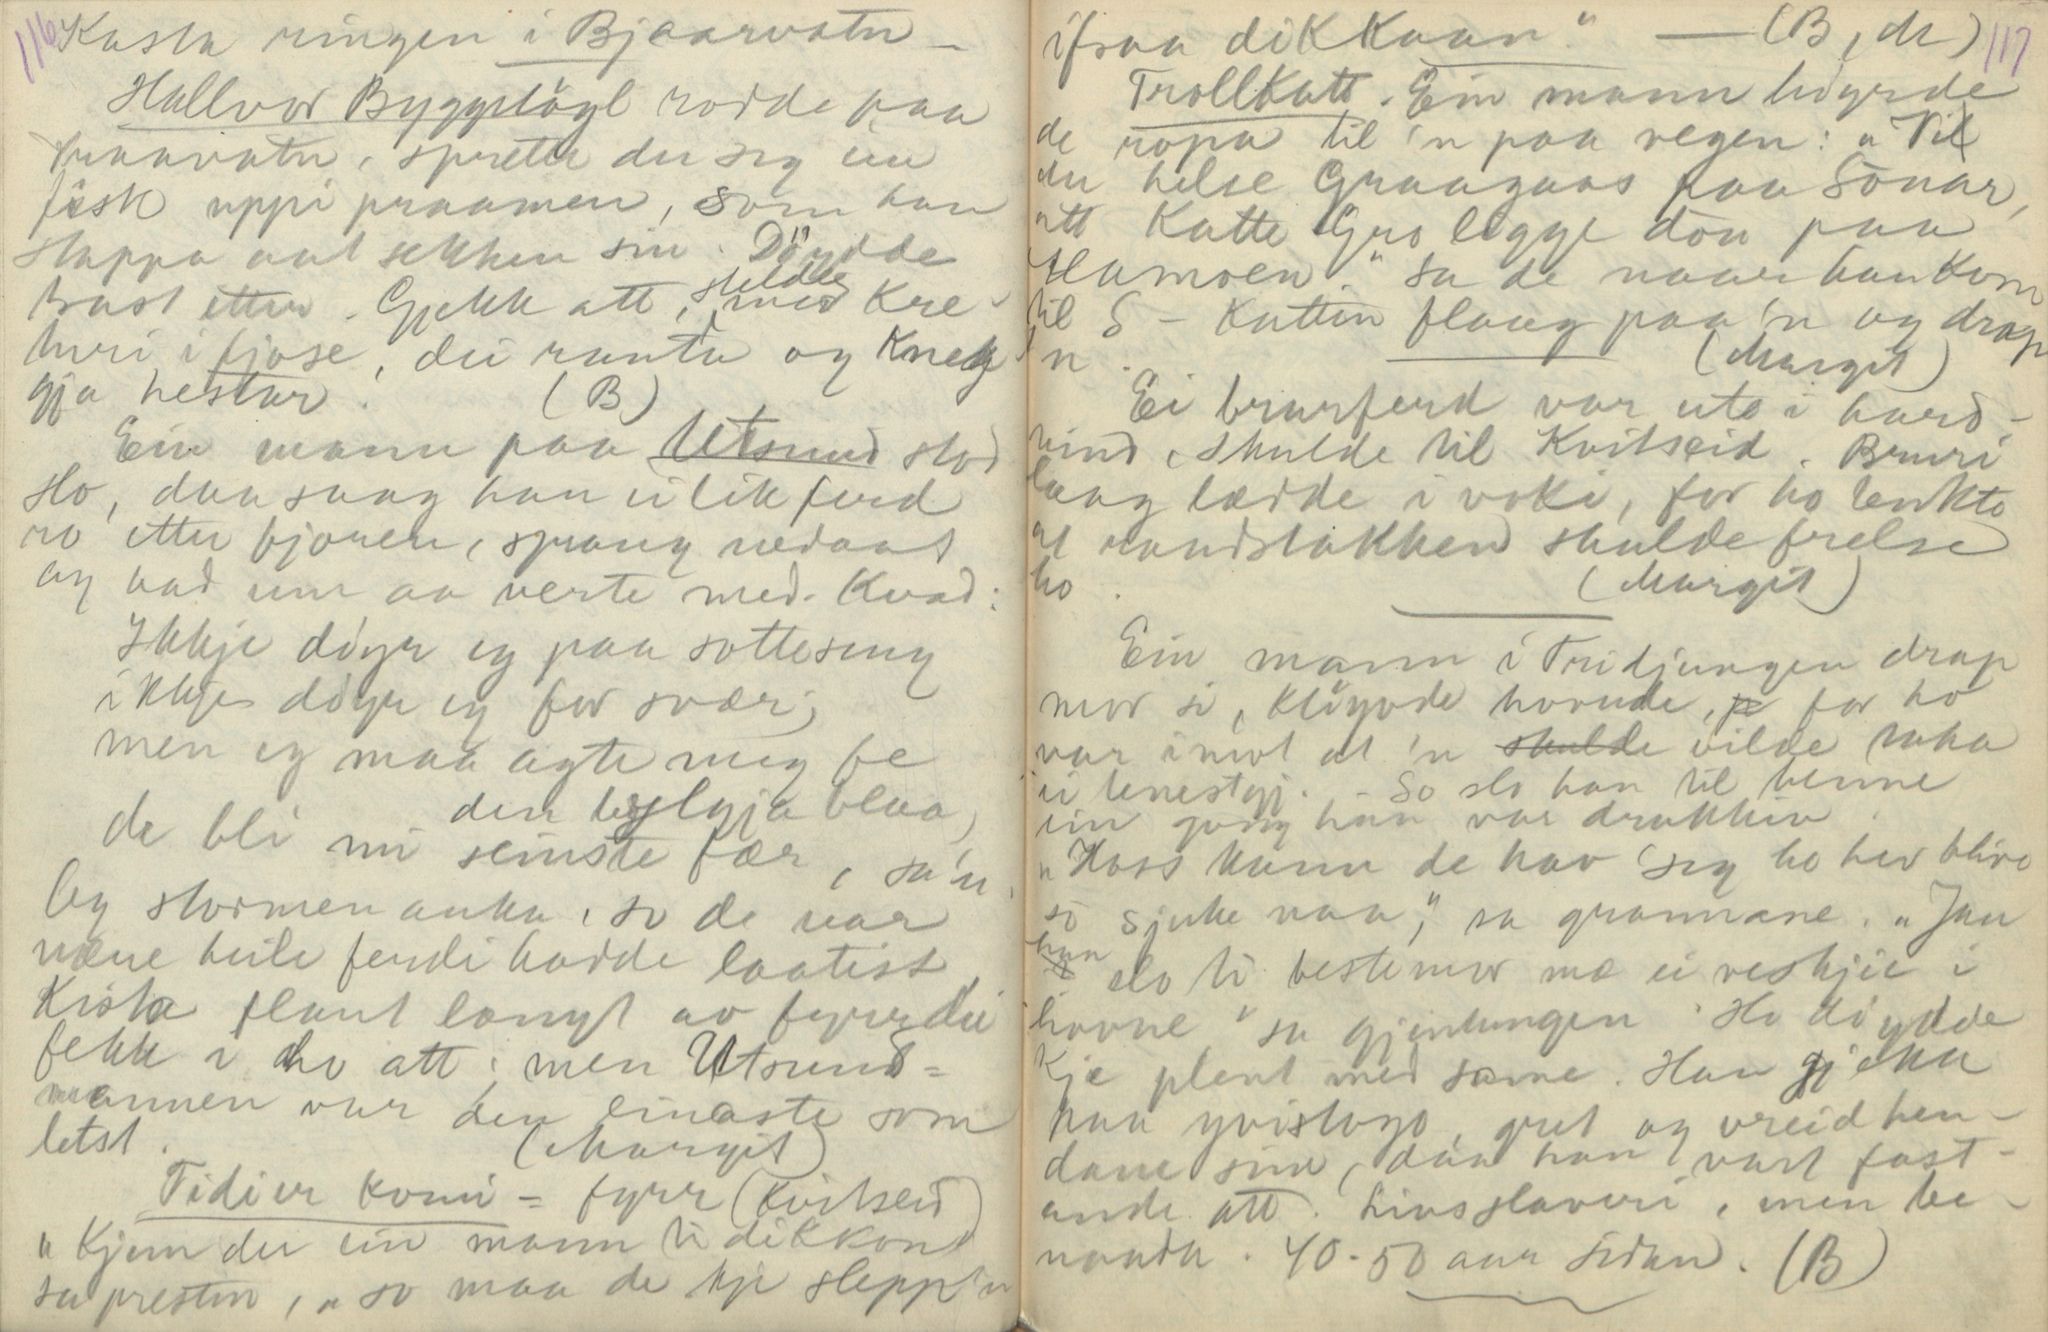 116
Kasta ringen i Bjaarvatn –
Hallvor Byggstöyl rodde paa
Kraavatn, sprette der seg ein
fisk uppi praamen, som han
slappa aat sekken sin. Döydde
brast etter. Gjekk att, stelde med kre-
turi i fjose, dei ranta og kneg
gja hestar. (B)
Ein mann paa Utsund stod
slo, daa saag han ei likferd
ro etter fjoren, sprang nedaat
og bad um aa verte med. Kvad:
Ikkje döyr eg paa sotteseng
ikkje döyr eg for svær;
men eg maa agte meg fe
den bylgja blaa,
de bli mi seinste fær, sa'n.
Og stormen auka, so de var
nære heile ferdi hadde laatist
Kista flaut langt av fyrr dei
fekk i ho att; men Utsund-
mannen var den einaste som
letst. (Margit)
Tidi er komi – fyrr (Kvitseid)
"Kjem der ein mann ti dikkon"
sa presten, "so maa de kje slepp'n
ifraa dikkaan." — (B, dr)
117
Trollkatt. Ein mann höyrde
de ropa til 'n paa vegen: "Vil
du helse Graagaas paa Sönar,
att Katte Gro ligge dön paa
Hamoen." Sa de naar han kom
til S – Katten flaug paa 'n og drap
'n. (Margit)
Ei brurferd var ute i hard-
vind, skulde til Kvitseid. Bruri
laag lædde i voki, for ho tenkte
at randstakken skulde frelse
ho. (Margit)
Ein mann i Tridjungen drap
mor si, klöyvde hovude, for ho
var imot at 'n skulde vilde taka
ei tenestgj. – So slo han til henne
ein gong han var drukkin.
"Koss kann de hav seg ho hev blive
so sjuke naa," sa grannane. "Jau
han slo ti bestemor mæ ei reskjei i
hovue" sa gjentungen. Ho döydde
kje plent med same. Han gjekk
paa yvislogo, gret og vreid hen-
dane sine, daa han vart fast-
ande att. Livsslaveri, men be-
naada. 40-50 aar sidan. (B)